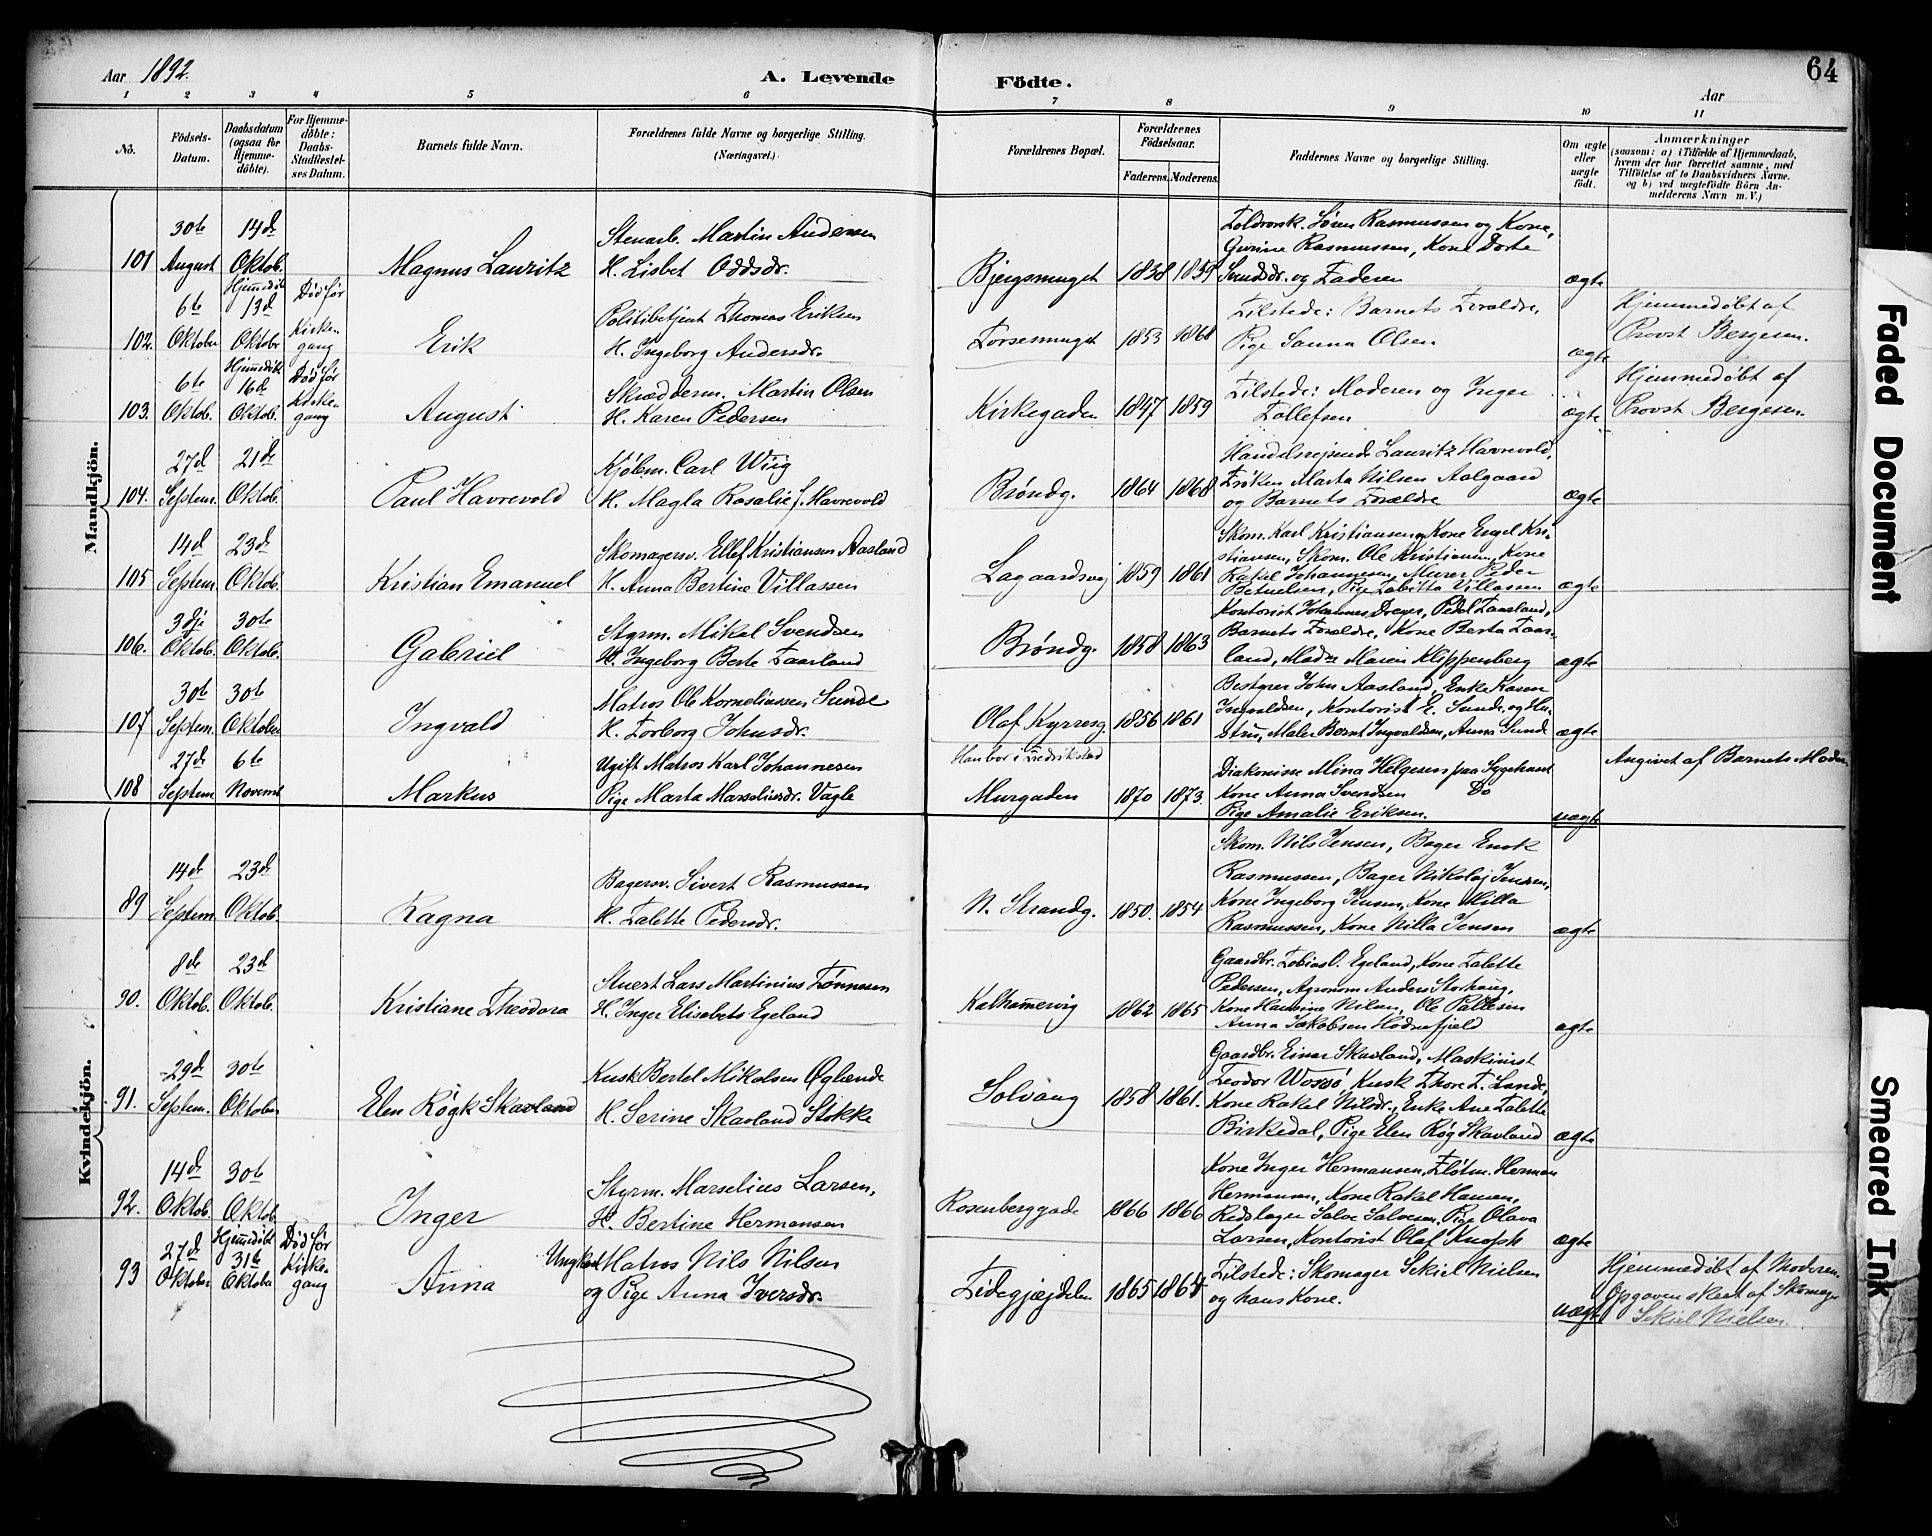 Aar 1892.
A. Levende Födte.
64
Aar
1 2 3 4 5 6 7 8 9 10 11
No.
Födsels-Datum.
Daabsdatum (ogsaa for Hjemmedöbte).
For Hjemmedöbte: Daabs-Stadfæstelses Datum.
Barnets fulde Navn.
Forældrenes fulde Navne og borgerlige Stilling. (Næringsvei.)
Forældrenes Bopæl.
Forældrenes Födselsaar.
Faderens. Moderens.
Faddernes Navne og borgerlige Stilling.
Om ægte eller uægte födt.
Anmærkninger
(saasom: a) i Tilfælde af Hjemmedaab, hvem der har forrettet samme, med Tilföielse af to Daabsvidners Navne. og b) ved uægtefödte Börn Anmelderens Navn m. V.)
Mandkjön.
101 30te August 14de Oktob. Magnus Lauritz
Stenarb. Martin Andersen
H. Lisbet Oddsdr.
Bjergsmuget 1838 1854
Toldrorsk. Søren Rasmussen og Kone,
Gurine Rasmussen, Kone Dorte
Svendsdr. og Faderen ægte
102. 6te Oktober Hjemmedøbt 13d Oktobr Død før Kirkegang Erik
Politibetjent Thomas Eriksen
H. Ingeborg Andersdr.
Torsemuget 1853 1868
Tilstede: Barnets Forældre,
Pige Sanna Olsen ægte
Hjemmedøbt af
Provst Bergesen.
103. 6te Oktob. Hjemmedøbt 16d Oktob. Død før Kirkegang August
Skrædderm. Martin Olsen
H. Karen Pedersen
Kirkegaden 1847 1859
Tilstede: Moderen og Inger
Tollefsen ægte
Hjemmedøbt af
Provst Bergesen.
104. 27d Septem. 21de Oktob. Paul Havrevold
Kjøbm. Carl Wiig
H. Magla Rosalie f. Havrevold
Brøndg. 1864 1868
Handelsrejsende Lauritz Havrevold,
Frøken Marta Nilsen Aalgaard
og Barnets Forældre ægte
105 14d Septem. 23d Oktob. Kristian Emanuel
Skomagersv. Ellef Kristiansen Aasland
H. Anna Bertine Villassen
Lagaardsvej 1859 1861
Skom. Karl Kristiansen, Kone Engel Kri-
stiansen, Skom. Ole Kristiansen, Kone
Rakel Johannesen, Murer Peder
Betuelsen, Pige Tabitta Villassen ægte
106. 3dje Oktob. 30te Oktob. Gabriel
Styrm. Mikal Svendsen
H. Ingeborg Berte Taarland
Brøndg. 1858 1863
Kontorist Johannes Dreyer, Peder Taarland,
Barnets Forældre, Kone Berta Taar-
land, Mad. Maren Klippenberg ægte
107 30te Septem. 30te Oktober Ingvald
Matros Ole Korneliussen Sunde
H. Torborg Johnsdr.
Olaf Kyrresg. 1856 1861
Bestyrer John Aasland, Enke Karen
Ingvaldsen, Kontorist E. Sunde og Hu-
stru, Maler Bernt Ingvaldsen, Anna Sunde ægte
108 27de Septem 6te Novemb Markus
Ugift Matros Karl Johannesen
Pige Marta Marseliusdr. Vagle
Han bor i Fredrikstad
Murgaden 1870 1873.
Diakonisse Mina Helgesen paa Sygehuset
Kone Anna Svendsen Do
Pige Amalie Eriksen. uægte
Angivet af Barnets Moder
Kvindekjön.
89 14de Septem. 23d Oktob. Ragna
Bagersv. Sivert Rasmussen
H. Talette Pedersdr.
N. Strandg. 1850. 1854
Skom. Nils Jensen, Bager Enok
Rasmussen, Bager Nikolaj Jensen,
Kone Ingeborg Jensen, Kone Milla
Rasmussen, Kone Nilla Jensen ægte
90. 8de Oktob. 23d Oktob. Kristiane Theodora
Stuert Lars Martinius Tønnesen
H. Inger Elisabets Egeland
Kalhammervig 1862 1865
Gaardbr. Tobias O. Egeland, Kone Talette
Pedersen, Agronom Anders Storhaug,
Kone Hansine Nilsen, Ole Pallesen
Anna Jakobsen Hodnefjeld ægte
91. 29d Septem. 30te Oktober Elen Røgk Skavland
Kusk Bertel Mikalsen Øglænde
H. Serine Skavland Stokke
Solvang 1858 1861.
Gaardbr. Einar Skavland, Maskinist
Teodor Wossø, Kusk Thore T. Lunde,
Kone Rakel Nilsdr., Enke Ane Talette
Birkedal, Pige Elen Røg Skavland ægte
92. 14de Oktob. 30te Oktob. Inger
Styrm. Marselius Larsen,
H. Bertine Hermansen
Rosenberggade 1866 1866
Kone Inger Hermansen, Fløtm. Herman
Hermansen, Kone Rakel Hansen,
Redslager Salve Salvesen, Pige Olava
Larsen, Kontorist Olaf Knoph ægte
93 27d Oktober Hjemmedøbt 31te Oktober Død før Kirkegang Anna
Ungkarl Matros Nils Nilsen
og Pige Anna Iversdr.
Fidegjæjdelen 1865 1864
Tilstede: Skomager Sekiel Nielsen
og hans Kone. uægte
Hjemmedøbt af Moderen.
Opgaven skeet af Skomager
Sekiel Nielsen.
Faded Document
Smeared Ink